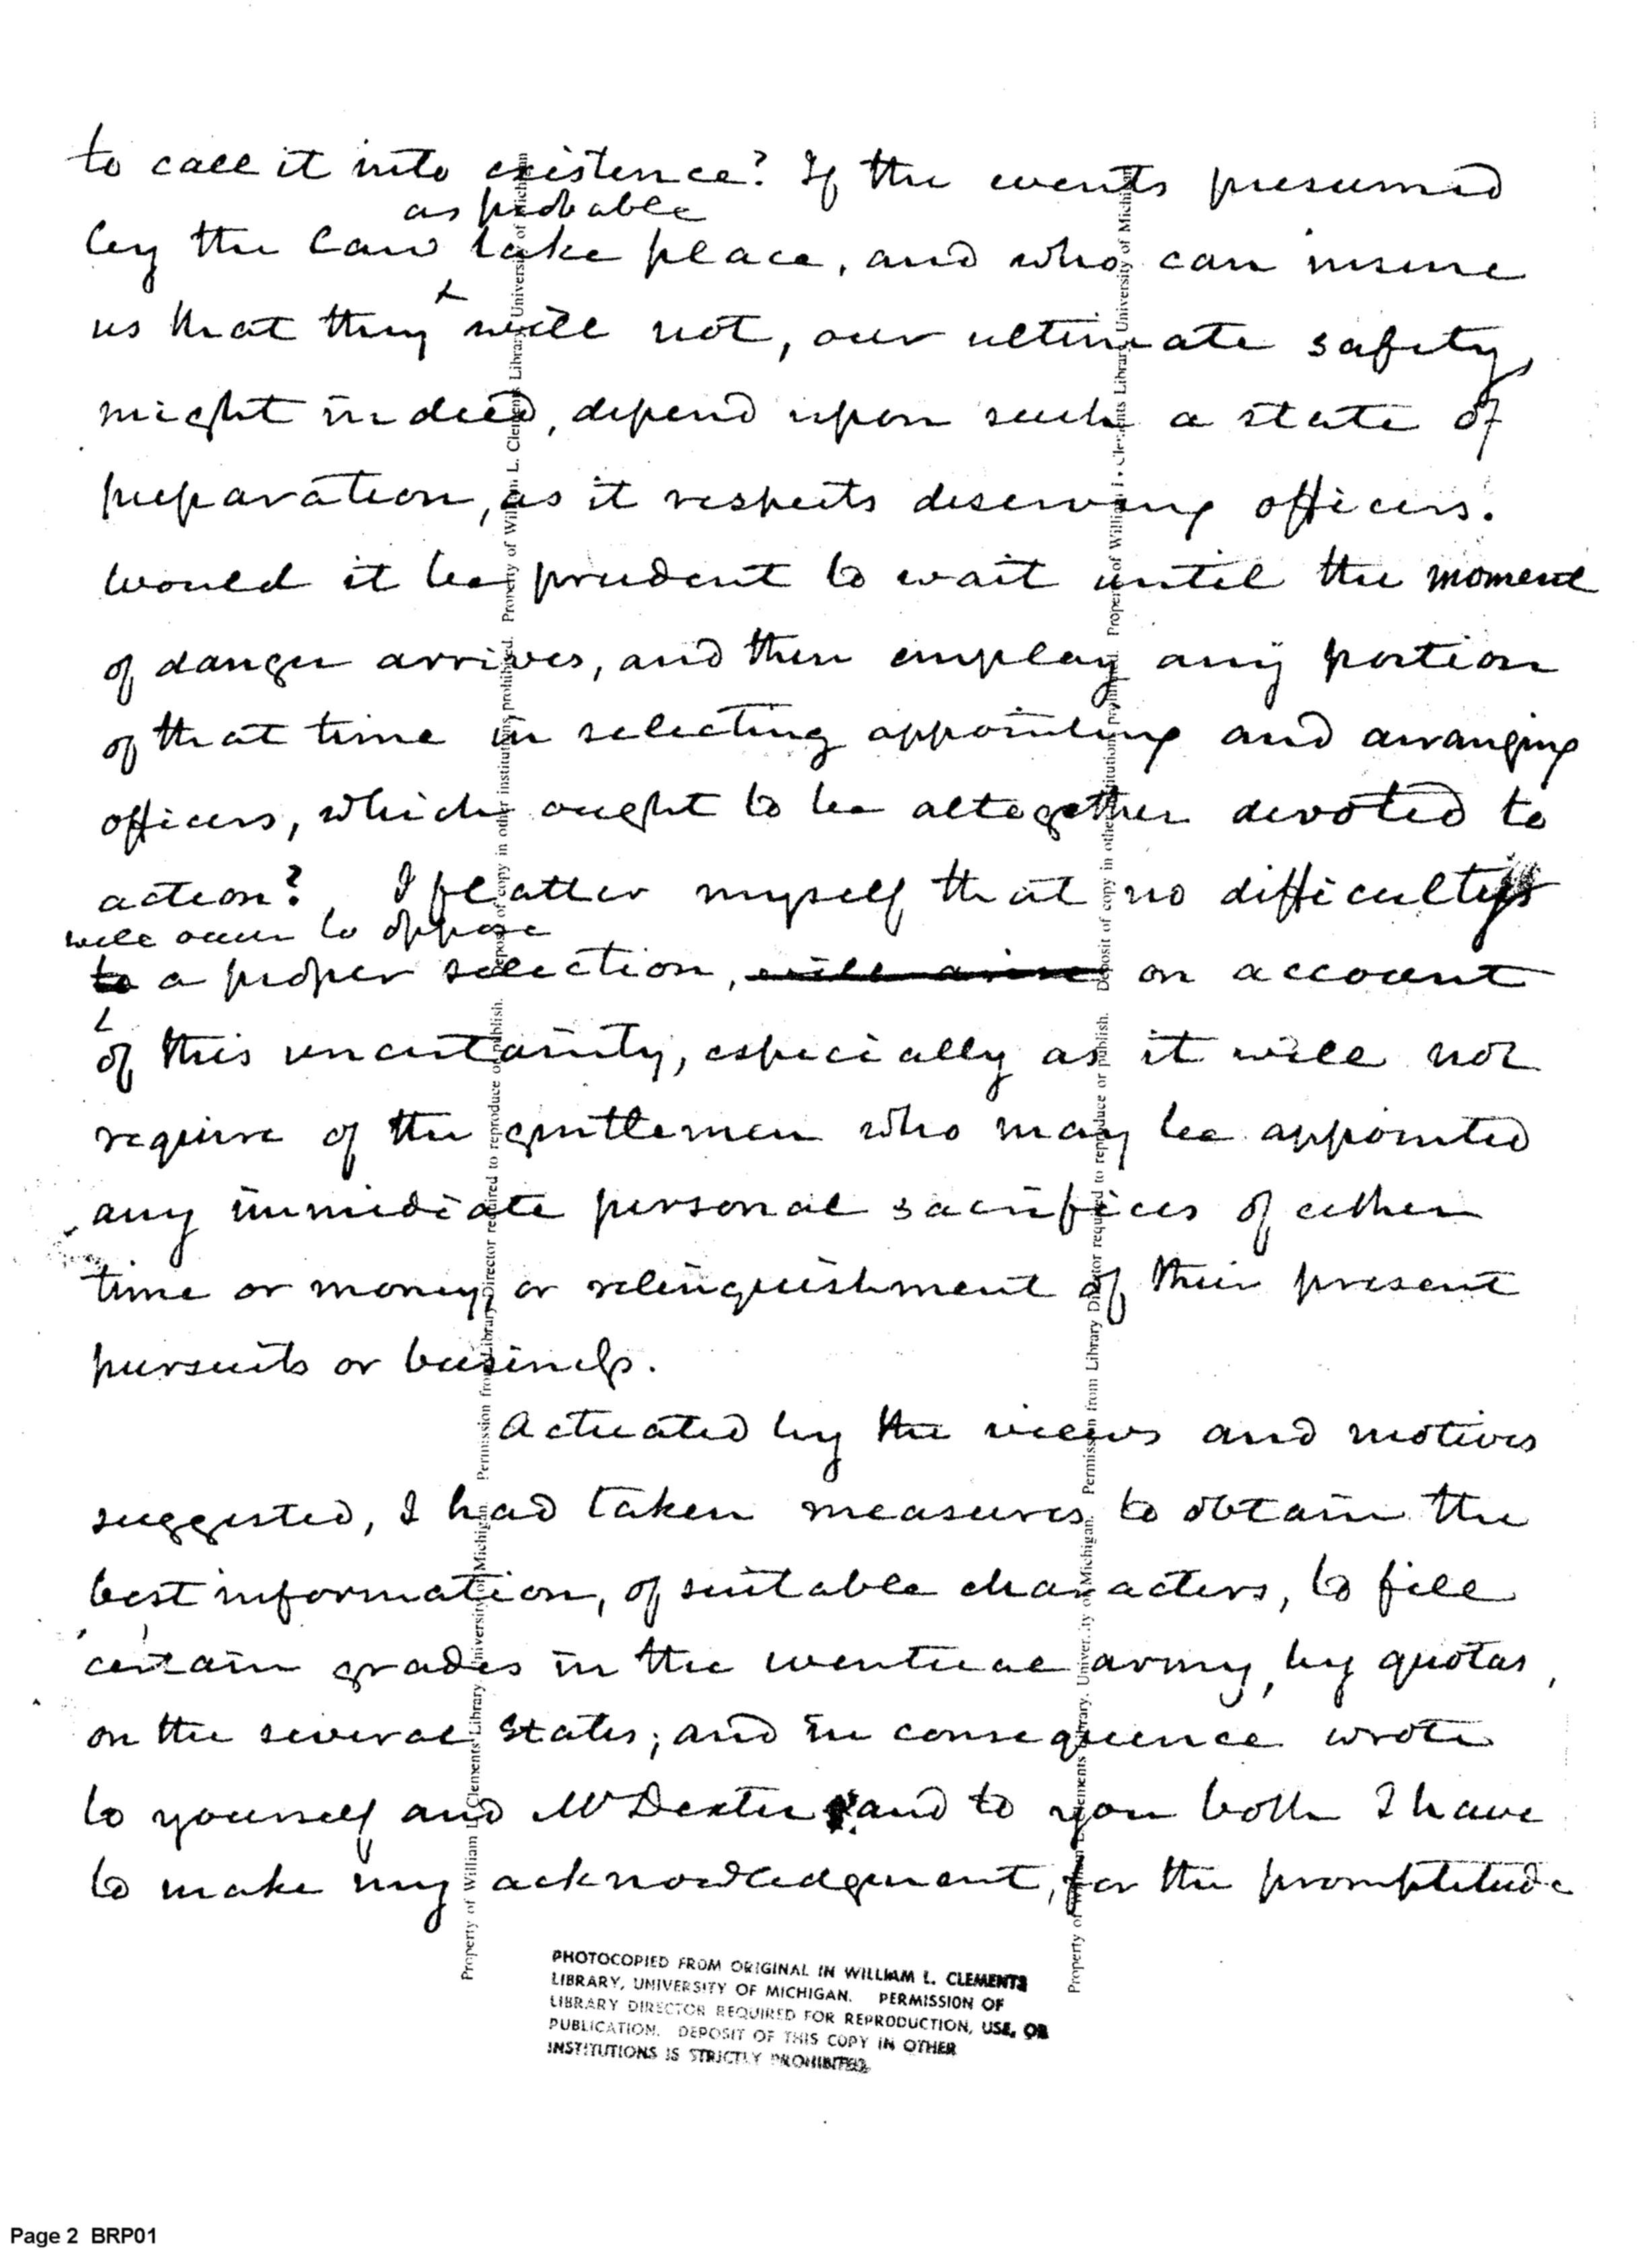 to call it into existence? If the events presumed
as probable
by the law take place, and who can insure
us that they will not, our ultimate safety,
might indeed, depend upon such a state of
preparation, as it respects deserving officers.
Would it be prudent to wait until the moment
of danger arrives, and then employ any portion
of that time in selecting appointing and arranging
officers, which ought to be altogether devoted to
action? I flatter myself that no difficulty
will occur to oppose
to a proper selection, will arise on account
of this uncertainity, especially as it will not
require of the gentlemen who may be appointed
any immediate personal sacrifices of either
time or money, or relinquishment of their present
pursuits or business.
Actuated by the views and motives
suggested, I had taken measures to obtain the
best information, of suitable characters, to fill
certain grades in the eventual army, by quotas,
on the several States; and in consequence wrote
to yourself and Mr Dexter and to you both I have
to make my acknowledgement, for the promptitude
Property of William L. Clements Library, University of Michigan. Permission from Library Director required to reproduce or publish. Deposit of copy in other institutions prohibited. Property of William L. Clements Library, University of Michigan
Property of William L. Clements Library, University of Michigan. Permission from Library Director required to reproduce or publish. Deposit of copy in other institutions prohibited. Property of William L. Clements Library, University of Michigan
PHOTOCOPIED FROM ORIGINAL IN WILLIAM L. CLEMENTS
LIBRARY, UNIVERSITY OF MICHIGAN. PERMISSION OF
LIBRARY DIRECTOR REQUIRED FOR REPRODUCTION, USE, OR
PUBLICATION. DEPOSIT OF THIS COPY IN OTHER
INSTITUTIONS IS STRICTLY PROHIBITED.
Page 2 BRP01